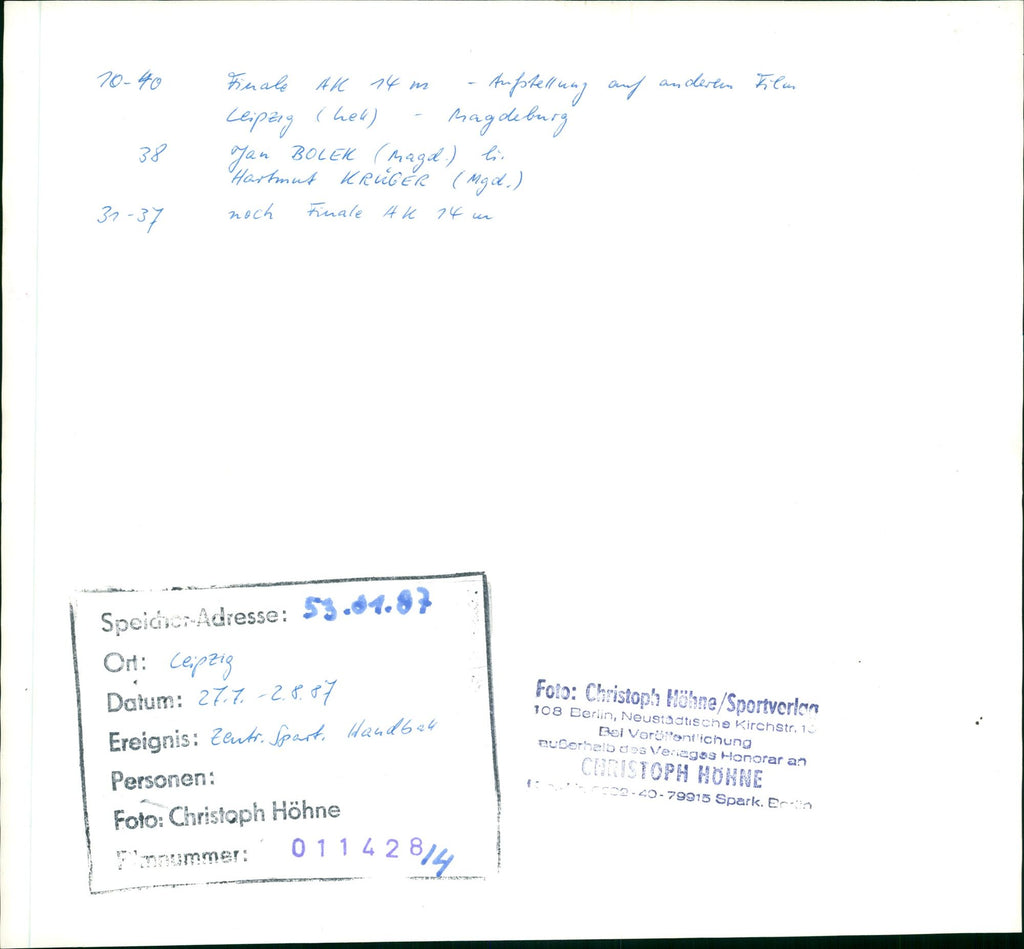 10-40 Finale AK 14 m - Aufstellung auf anderem Film
Leipzig (hell) - Magdeburg
38 Jan BOLEK (Magd.) li.
Hartmut KRÜGER (Mgd.)
31-37 noch Finale AK 14 m
Speicher-Adresse: 53.01.87
Ort: Leipzig
Datum: 27.7. - 2.8.87
Ereignis: Zentr. Spart. Handball
Personen:
Foto: Christoph Höhne
Filmnummer: 011428/4
Foto: Christoph Höhne/Sportverlag
108 Berlin, Neustädtische Kirchstr.
Bei Veröffentlichung
außerhalb des Verlages Honorar an
CHRISTOPH HÖHNE
-40-79915 Spark. Berlin